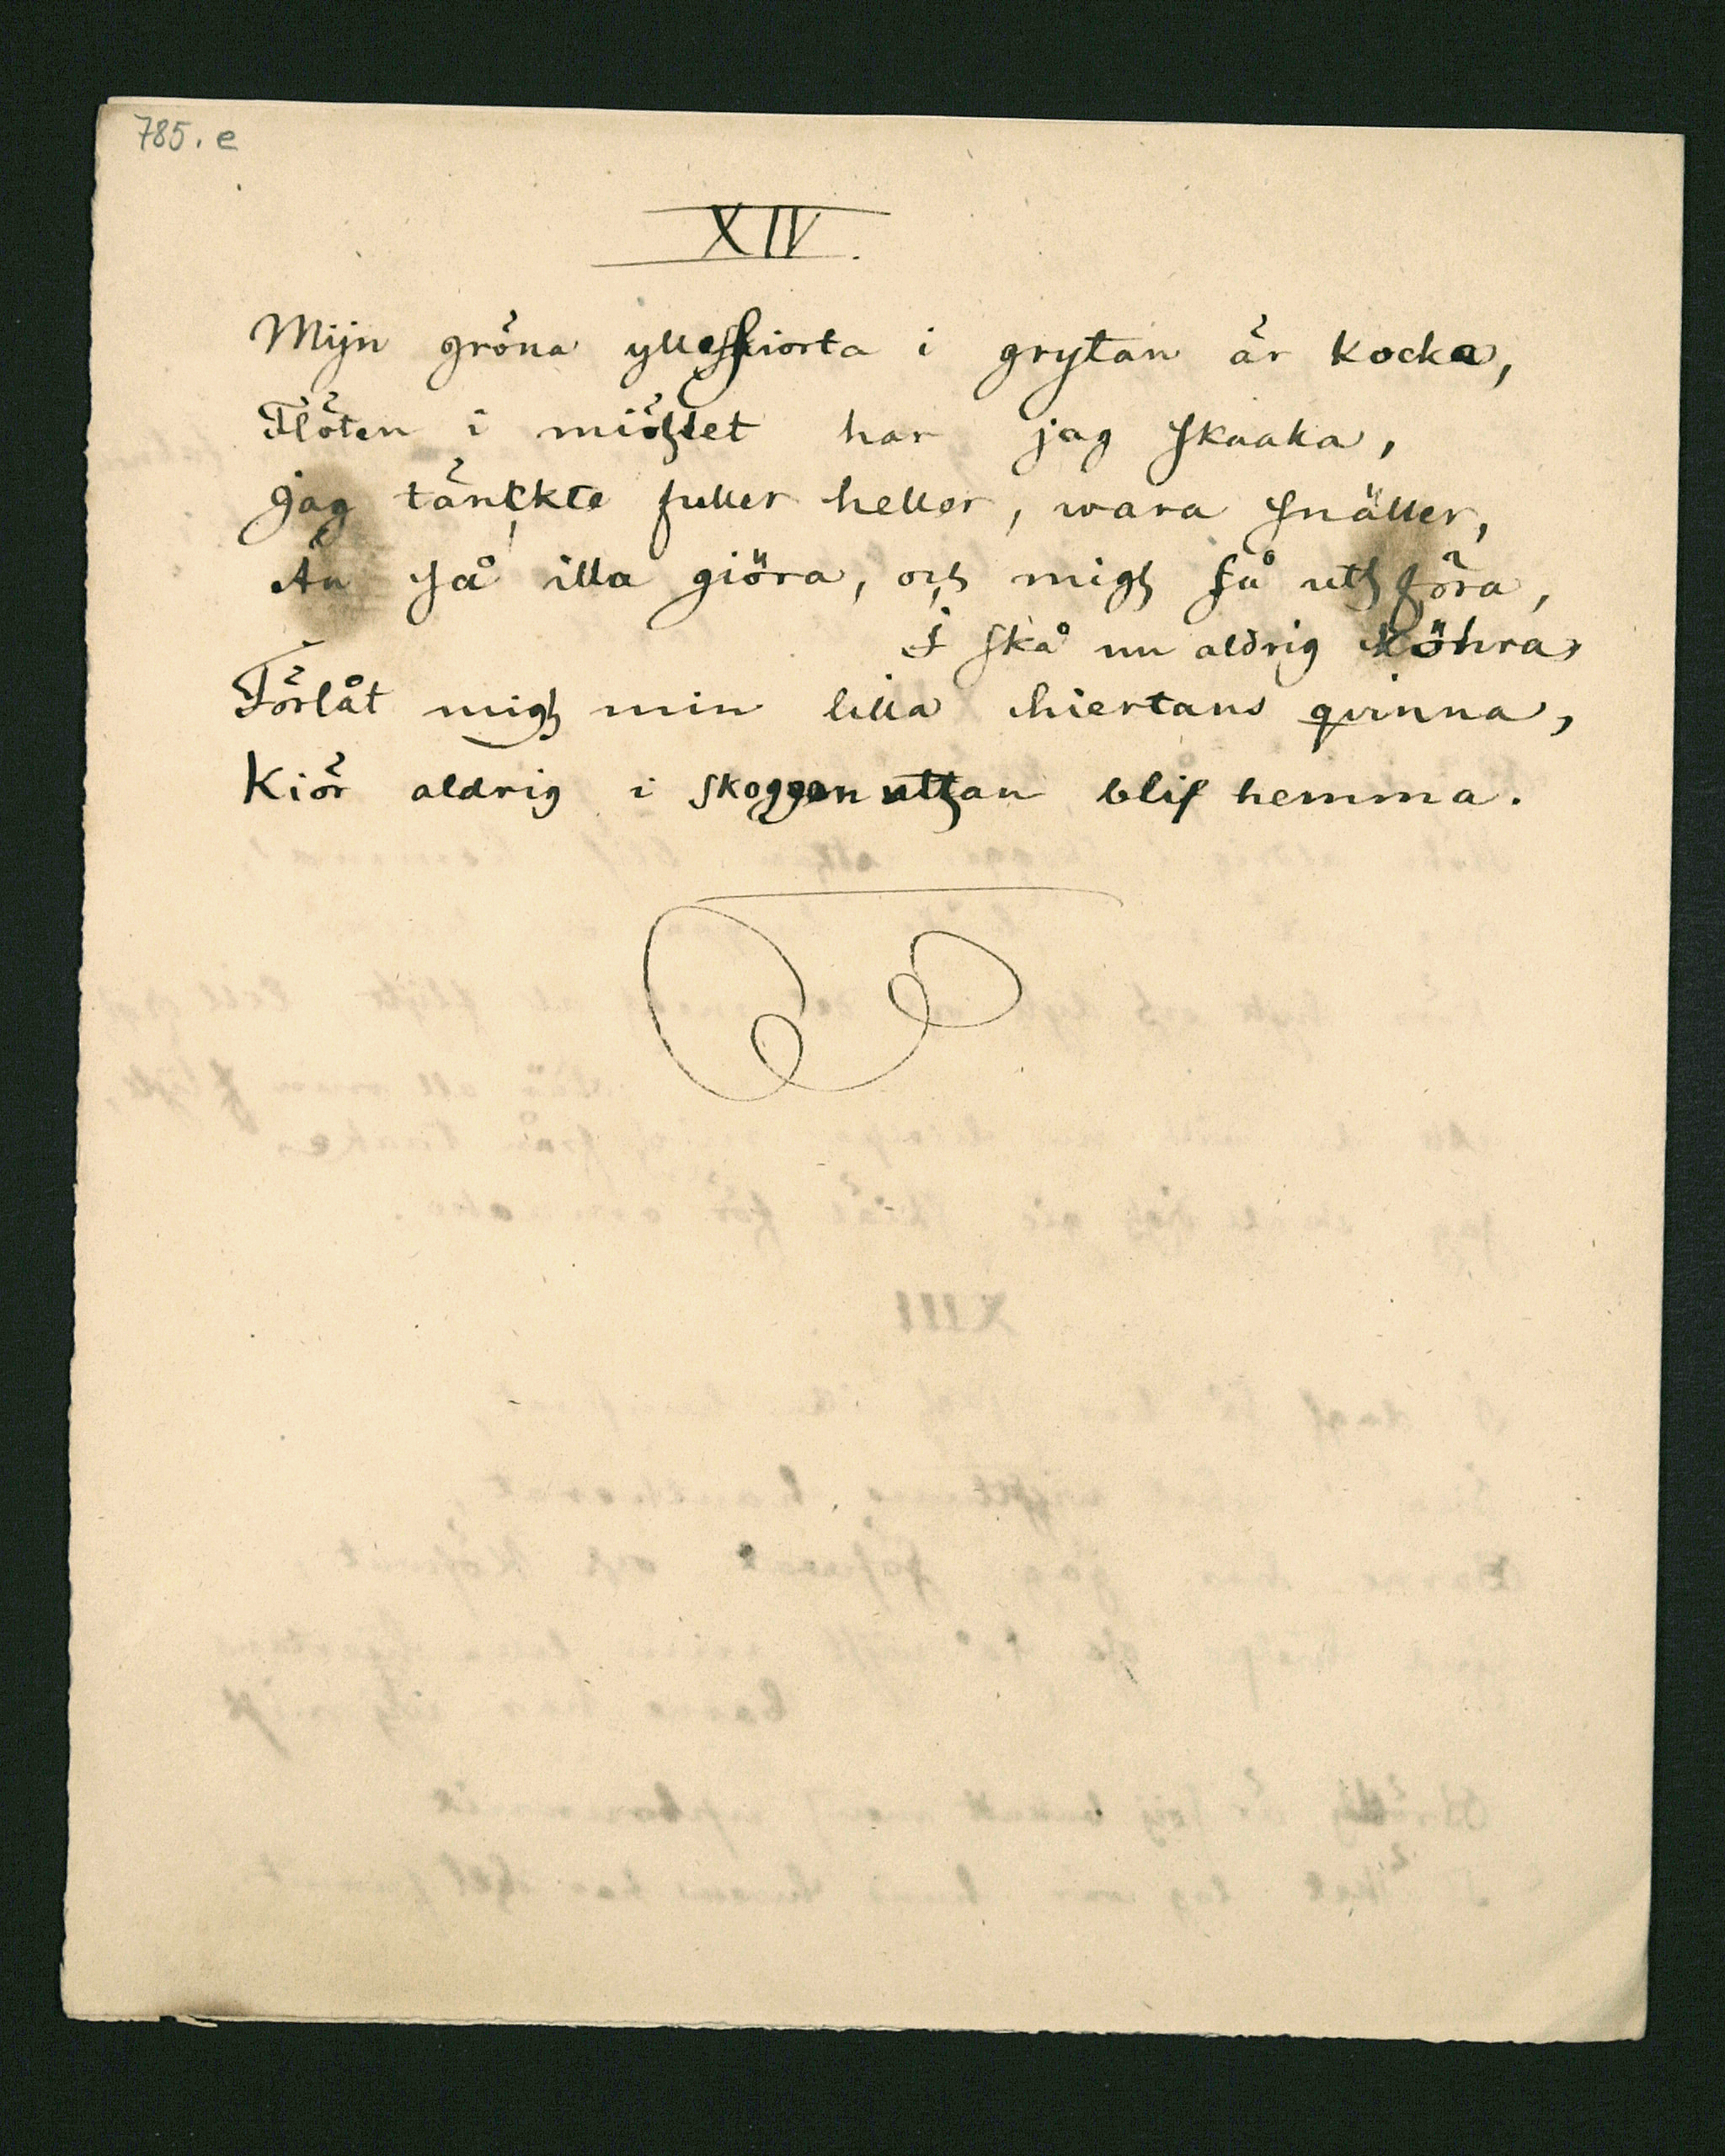 785. e
XIV.
Mijn gröna ylleskiorta i grytan är kocka,
Flöten i miöhlet har jag skaaka,
Jag tänckte fuller heller, wara snäller,
Än så illa giöra, och migh så uthföra,
I skå nu aldrig köhra,
Förlåt migh min lilla hiertans qvinna,
Kiör aldrig i skoggen utthan blif hemma.